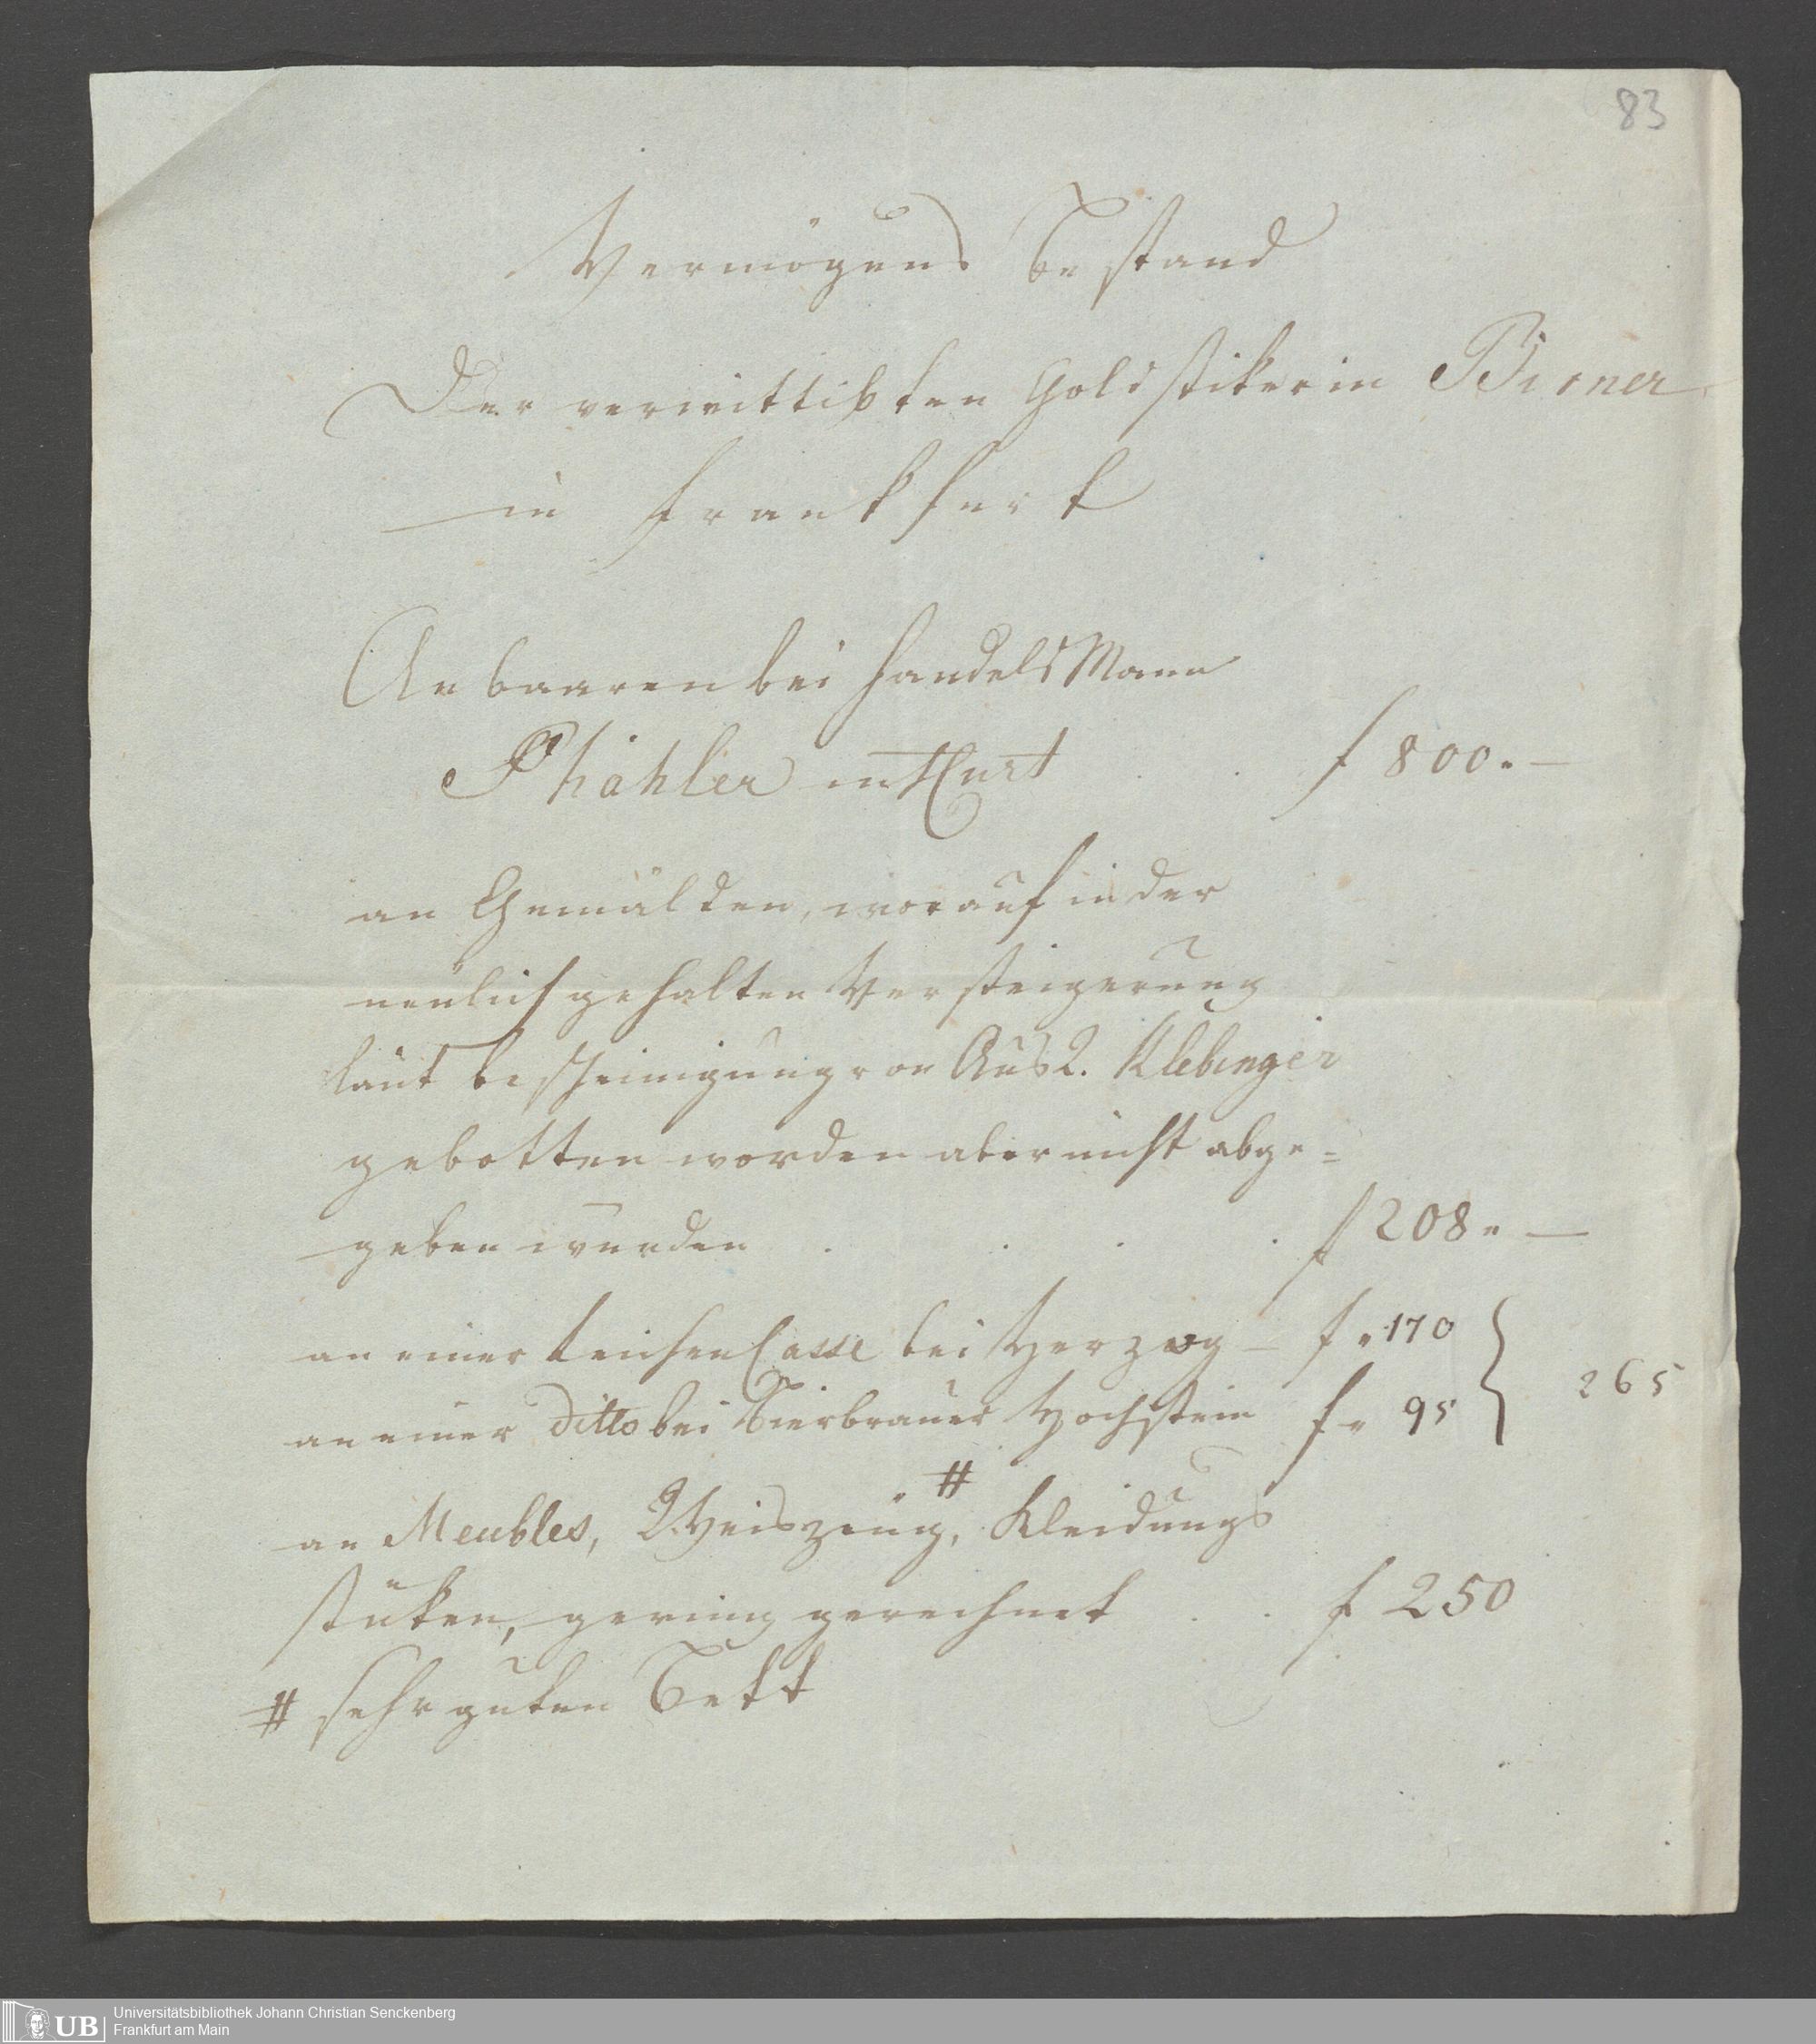 83
Vermögens Bestand
Der verwittibten Goldstikerin Birner
in Frankfurt
An baaren bei HandelsMann
Phähler in
f 800.—
an Gemälden, worauf in der
neulich gehalten Versteigerung
laut Bescheinigung von Ausr. Klebinger
gebotten worden aber nicht abge=
geben wurden . . . . f 208 " —
an einer LeichenCasse bei Herzog — f " 170
an einer ditto bei Bierbrauer Hochstein f " 95 } 265
an Meubles, # Weiszeug, Kleidungs
stüken, gering gerechnet . . f 250
# sehr guten Bett
UB Universitätsbibliothek Johann Christian Senckenberg
Frankfurt am Main